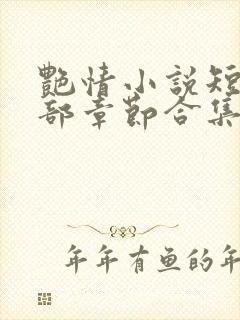 艷情小説短
部章節合集
年年有鱼的年